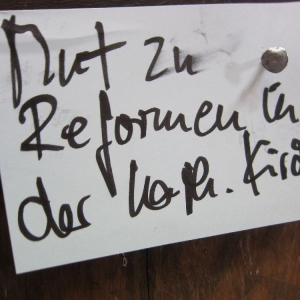 Mut zu
Reformen in
der kath. Kirc